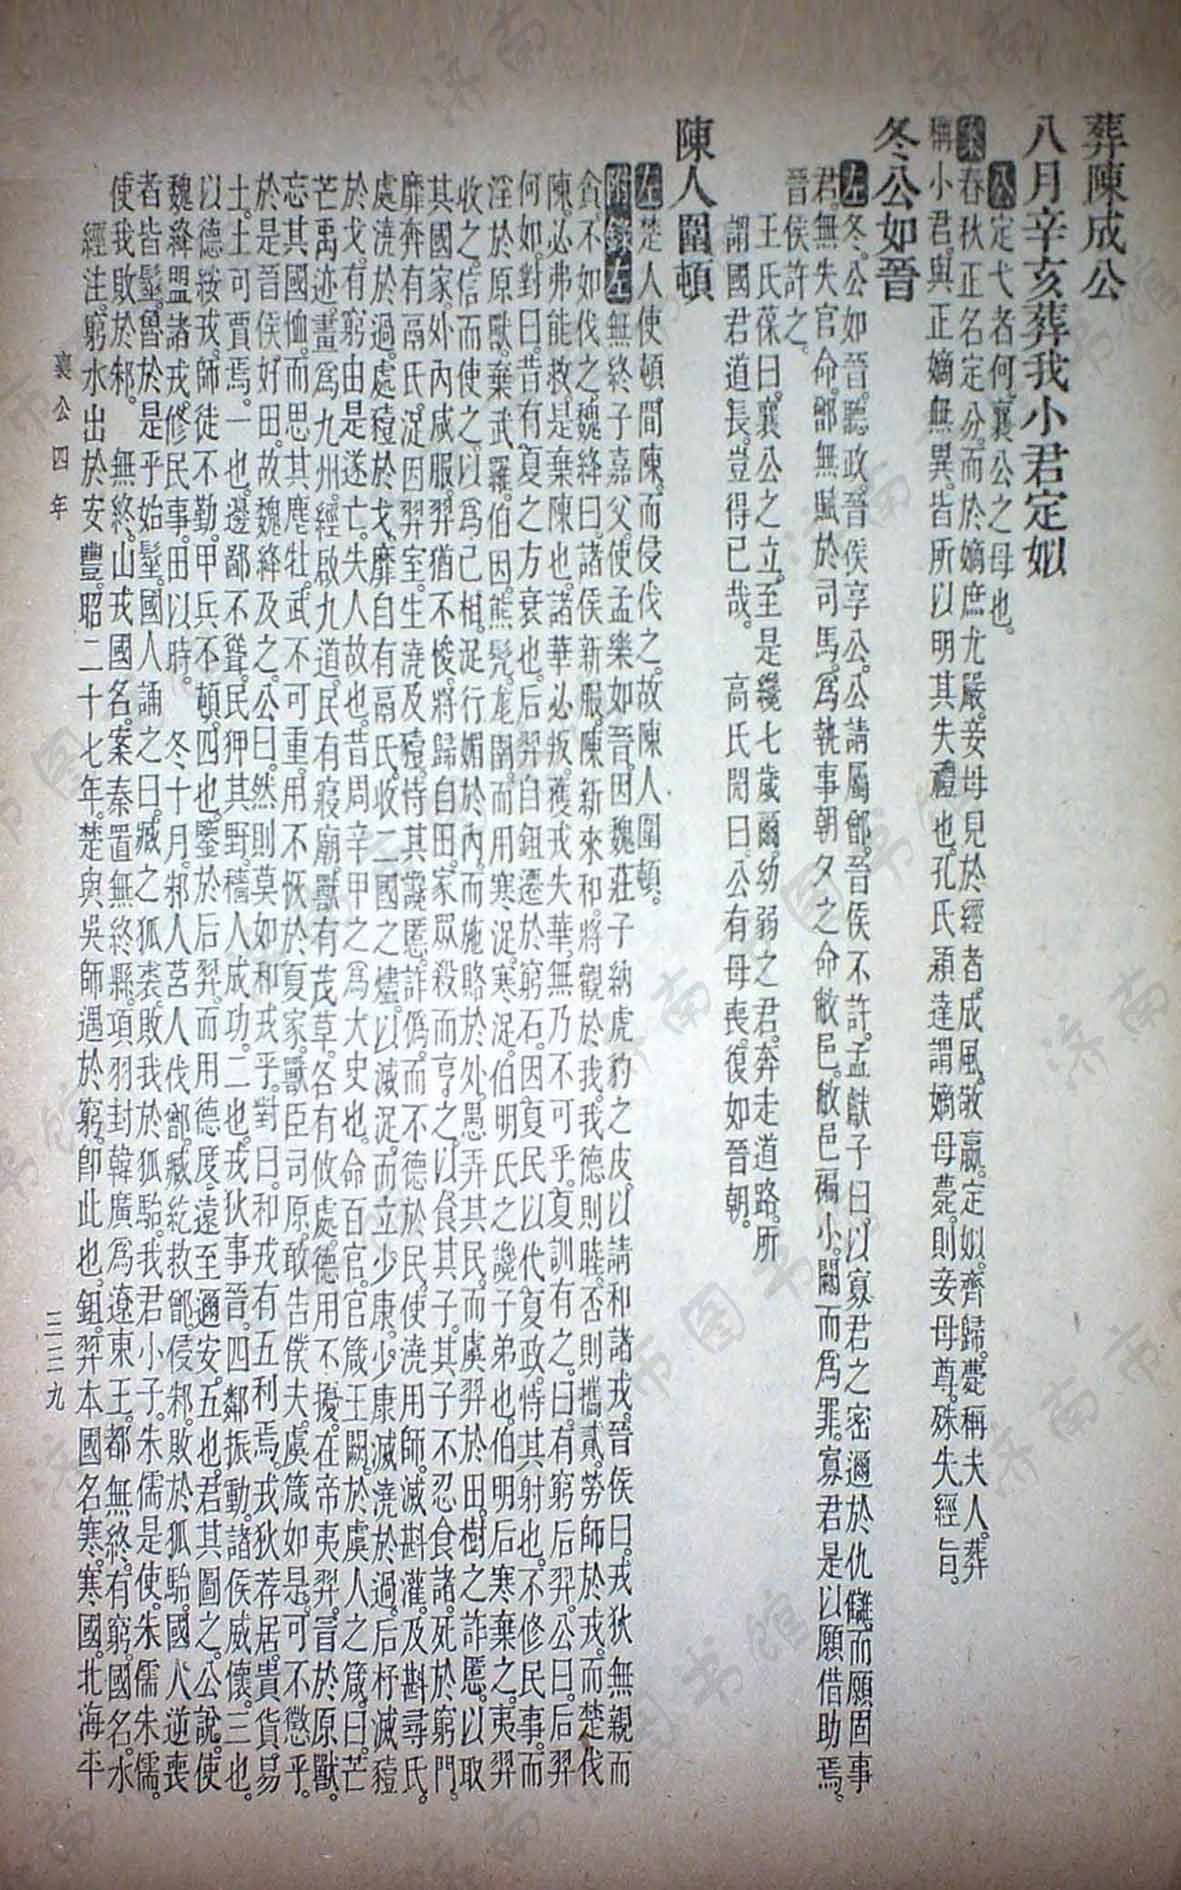 葬陳成公
八月辛亥葬我小君定姒
公定弋者何。襄公之母也。
案春秋正名定分。而於嫡庶尤嚴。妾母見於經者。成風。敬嬴。定姒。齊歸。薨稱夫人。葬
稱小君。與正嫡無異。皆所以明其失禮也。孔氏穎達謂嫡母薨。則妾母尊。殊失經旨。
冬公如晉
左冬。公如晉。聽政。晉侯享公。公請屬鄫。晉侯不許。孟獻子曰。以寡君之密邇於仇讎。而願固事
君。無失官命。鄫無賦於司馬。爲執事朝夕之命敝邑。敝邑褊小。闕而爲罪。寡君是以願借助焉。
晉侯許之。
王氏葆曰。襄公之立。至是纔七歲爾。幼弱之君。奔走道路。所
謂國君道長。豈得已哉。 高氏閌曰。公有母喪。復如晉朝。
陳人圍頓
左楚人使頓。間陳而侵伐之。故陳人圍頓。
附錄左無終子嘉父。使孟樂如晉。因魏莊子納虎豹之皮。以請和諸戎。晉侯曰。戎狄無親而
貪。不如伐之。魏絳曰。諸侯新服。陳新來和。將觀於我。我德則睦。否則攜貳。勞師於戎。而楚伐
陳。必弗能救。是棄陳也。諸華必叛。獲戎失華。無乃不可乎。夏訓有之。曰。有窮后羿。公曰。后羿
何如。對曰。昔有夏之方衰也。后羿自鉏遷於窮石。因夏民以代夏政。恃其射也。不修民事。而
淫於原獸。棄武羅。伯因。熊髡。尨圉。而用寒浞。寒浞。伯明氏之讒子弟也。伯明后寒棄之。夷羿
收之。信而使之。以爲己相。浞行媚於內。而施賂於外。愚弄其民。而虞羿於田。樹之詐慝。以取
其國家。外內咸服。羿猶不悛。將歸自田。家眾殺而亨之。以食其子。其子不忍食諸。死於窮門。
靡奔有鬲氏。浞因羿室。生澆及豷。恃其讒慝詐僞。而不德於民。使澆用師。滅斟灌。及斟尋氏。
處澆於過。處豷於戈。靡自有鬲氏。收二國之燼。以滅浞。而立少康。少康滅澆於過。后杼滅豷
於戈。有窮由是遂亡。失人故也。昔周辛甲之爲大史也。命百官。官箴王闕。於虞人之箴曰。芒
芒禹迹。畫爲九州。經啟九道。民有寢廟。獸有茂草。各有攸處。德用不擾。在帝夷羿。冒於原獸。
忘其國恤。而思其麀牡。武不可重。用不恢於夏家。獸臣司原。敢告僕夫。虞箴如是。可不懲乎。
於是晉侯好田。故魏絳及之。公曰。然則莫如和戎乎。對曰。和戎有五利焉。戎狄荐居。貴貨易
土。土可賈焉。一也。邊鄙不聳。民狎其野。穡人成功。二也。戎狄事晉。四鄰振動。諸侯威懷。三也。
以德綏戎。師徒不勤。甲兵不頓。四也。鑒於后羿。而用德度。遠至邇安。五也。君其圖之。公說。使
魏絳盟諸戎。修民事。田以時。 冬十月。邾人莒人伐鄫。臧紇救鄫侵邾。敗於狐駘。國人逆喪
者皆髽。魯於是乎始髽。國人誦之曰。臧之狐裘。敗我於狐駘。我君小子。朱儒是使。朱儒朱儒。
使我敗於邾。 無終。山戎國名。案秦置無終縣。項羽封韓廣爲遼東王。都無終。有窮。國名。水
經注。窮水出於安豐。昭二十七年。楚與吳師遇於窮。卽此也。鉏。羿本國名。寒。寒國。北海平
襄公四年 三二九